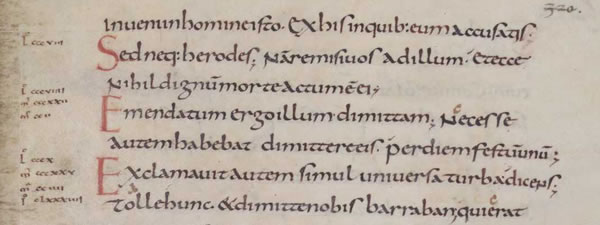 320.
inuenio in homine isto. Ex his inquib: eum accusatis.
Sed neq: herodes; Nā remisi uos ad illum. et ecce
Nihil dignū morte actum ē ei;
Emendatum ergo illum dimittam; Necesse
autem habebat dimittere eis. per diem festū unū;
Exclamauit autem simul uniuersa turba dicens;
Tolle hunc. & dimitte nobis barraban, qui erat